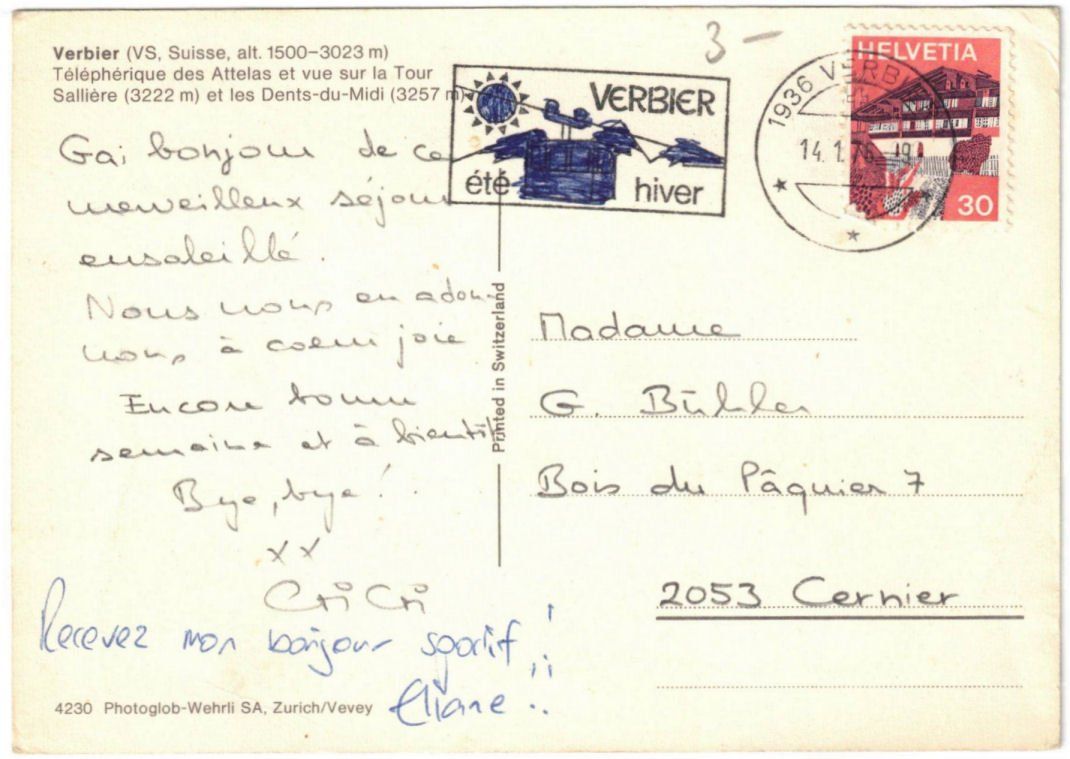 Verbier (VS, Suisse, alt. 1500–3023 m)
Téléphérique des Attelas et vue sur la Tour
Sallière (3222 m) et les Dents-du-Midi (3257 m)
3 –
VERBIER
été
hiver
1936 VERBIER
14. 1. 76 - 19
HELVETIA
30
Gai bonjour de ce
merveilleux séjour
ensoleillé.
Nous nous en adon-
nons à coeur joie
Encore bonne
semaine et à bientôt
Bye, bye!
xx
Cri Cri
Recevez mon bonjour sportif!
Eliane
4230 Photoglob-Wehrli SA, Zurich/Vevey
Printed in Switzerland
Madame
G. Bühler
Bois du Pâquier 7
2053 Cernier